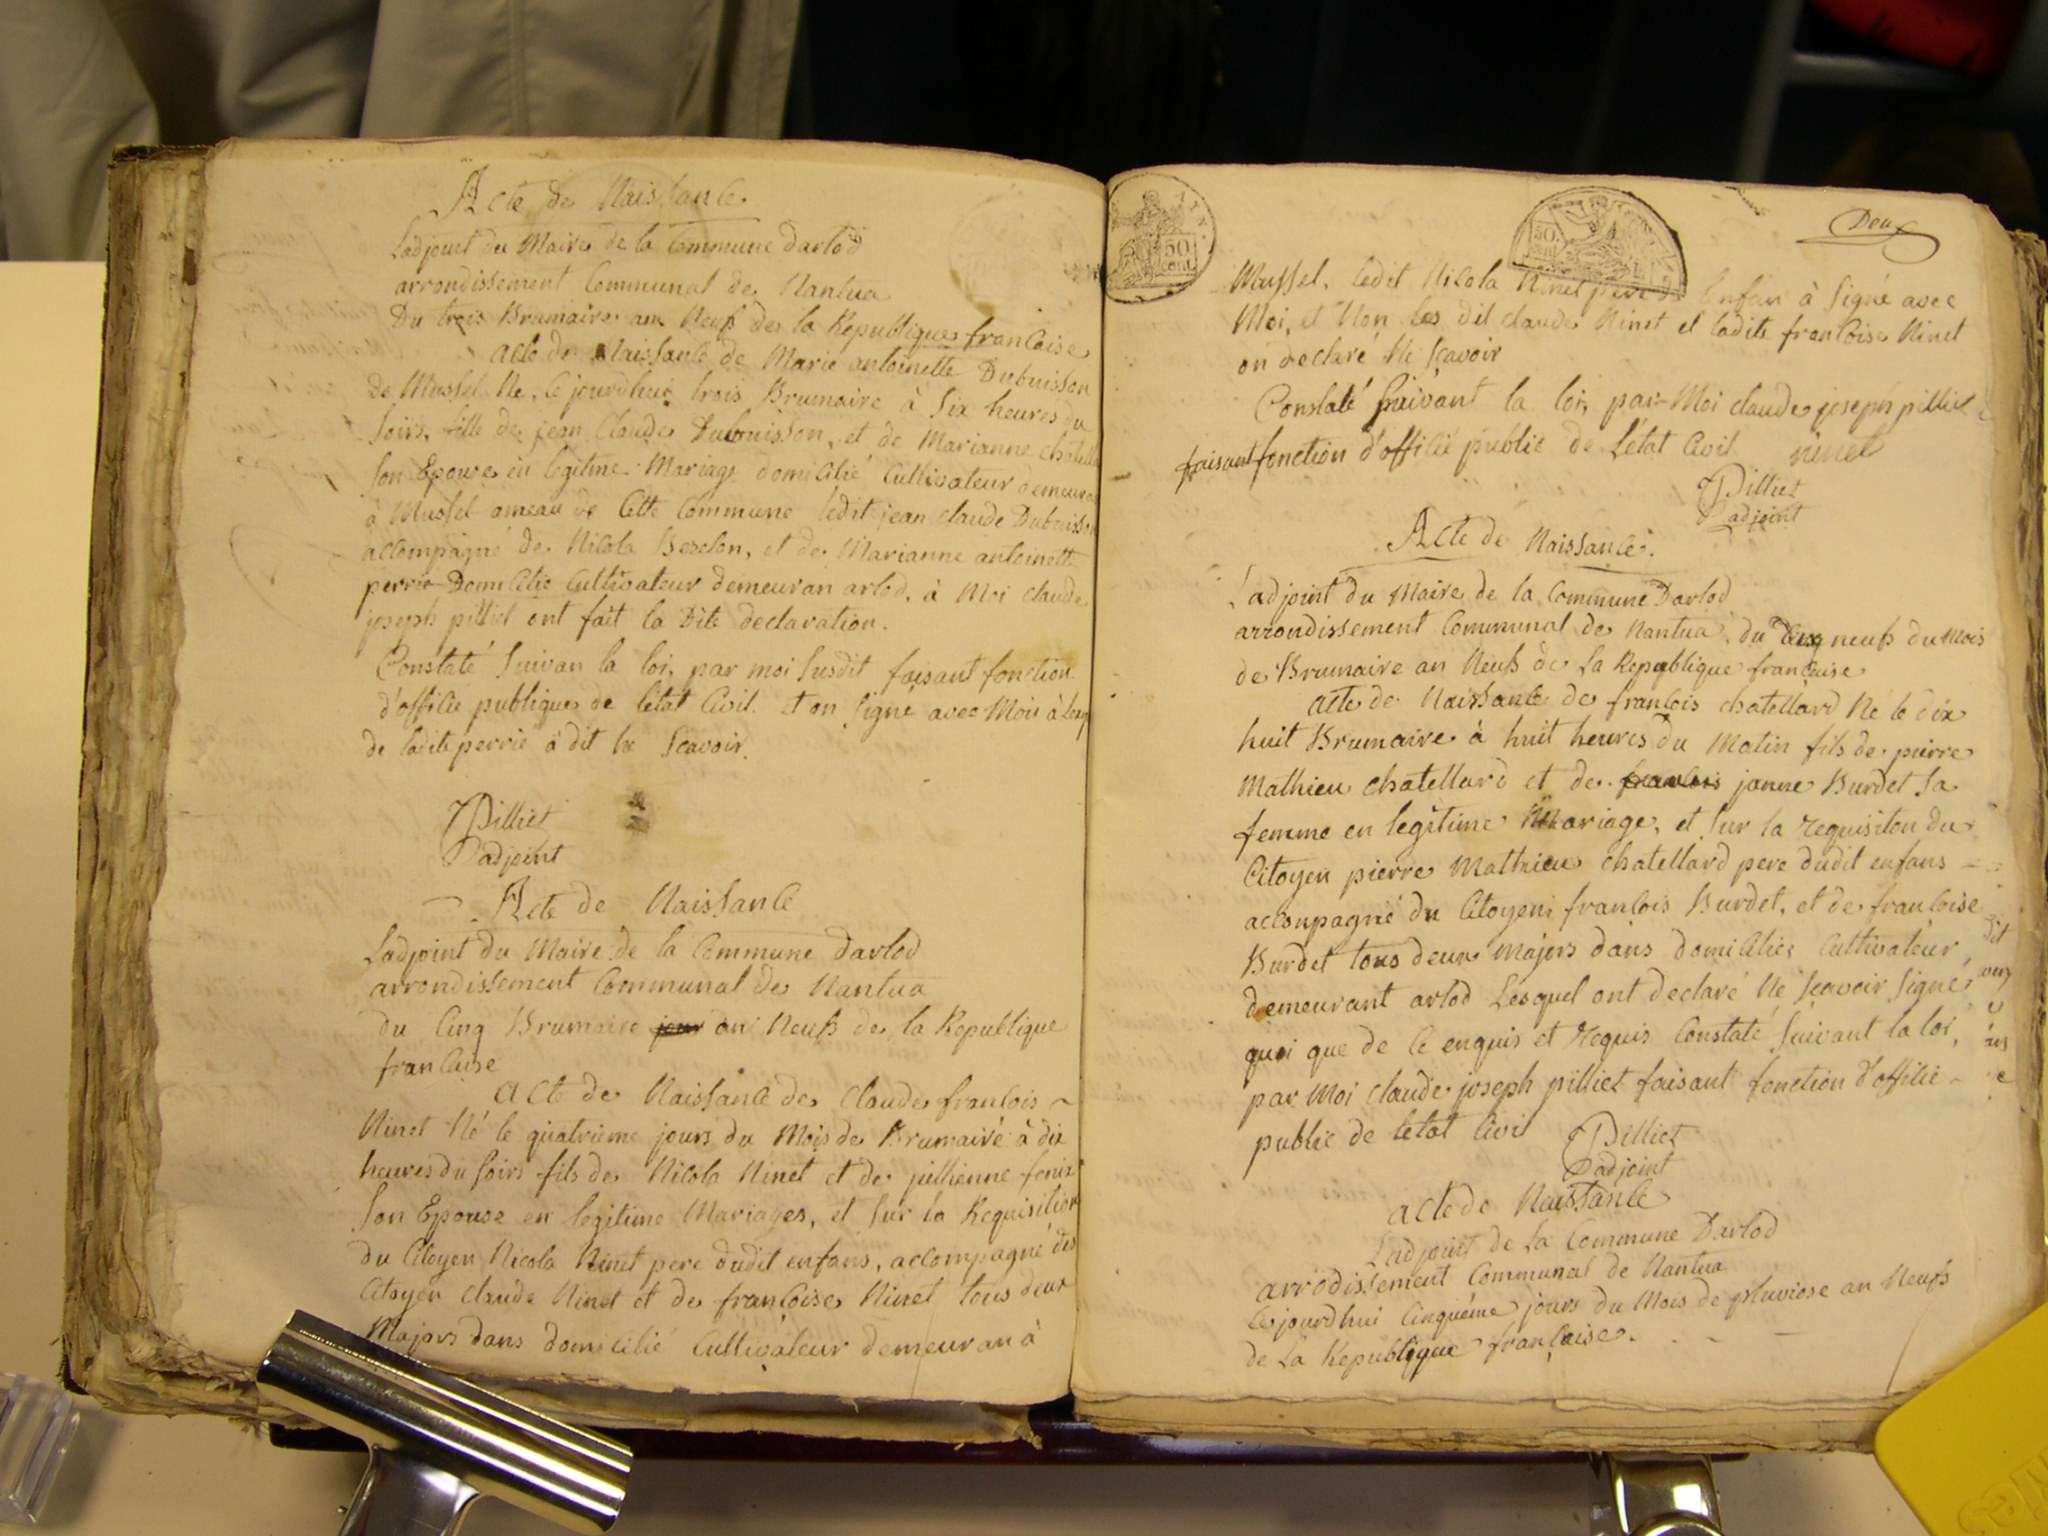 Acte de Naissance
Ladjoint du Maire de la Commune darlod
arrondissement Communal de Nantua
Du trois Brumaire an Neuf de la Republique francoise
acte de Naissance de Marie antoinette Dubuisson
de Mussel Ne, le jourdhui trois Brumaire à Six heures du
Soirs, fille de jean Claude Dubouisson, et de Marianne chatella
Son Epouse en legitime Mariage domicilié Cultivateur demeura
à Mussel ameau de Cette Commune ledit jean claude Dubuisson
accompagné de Nicola Berelon, et de Marianne antoinette
perrie Domicilie Cultivateur demeuran arlod, à Moi claude
joseph pilliet ont fait la Dite declaration.
Constaté Suivan la loi, par moi Susdit faisant fonction
d'officie publique de létat Civil. et on Signé avec Moi à
de ladite perrie à dit Ne Scavoir.
Pilliet
Ladjoint
Acte de Naissance
Ladjoint du Maire de la Commune darlod
arrondissement Communal de Nantua
du Cinq Brumaire jour an Neuf de la Republique
francaise
Acte de Naissance de Claude francois
Ninet Né le quatrieme jours du Mois de Brumaire à dix
heures du Soirs fils de Nicola Ninet et de fenix
Son Epouse en legitime Mariages, et Sur la Requisition
du Citoyen Nicola Ninet pere dudit enfans, accompagné des
Citoyen Claude Ninet et de françoise Ninet tous deux
Majors dans domicilié Cultivateur demeuran à
50
cent
50
Deux
Mussel. ledit Nicola Ninet pere de lenfan à Signé avec
Moi, et Non les dit claude Ninet et ladite francoise Ninet
on declaré Ne Scavoir
Constaté Suivant la loi, par Moi claude joseph pilliet
faisant fonction d'officié public de Létat Civil ninet
Pilliet
Ladjoint
Acte de Naissance.
L'adjoint du Maire de la Commune Darlod
arrondissement Communal de Nantua, du neuf du Mois
de Brumaire an Neuf de la Republique francaise
acte de Naissance de francois chatellard Né le dix
huit Brumaire à huit heures du Matin fils de pierre
Mathieu chatellard et de francois janne Burdet Sa
femme en legitime Mariage, et Sur la requisiton du
Citoyen pierre Mathieu chatellard pere dudit enfans
accompagné du Citoyens francois Burdet, et de francoise
Burdet tous deux Majors dans domiciliés Cultivateur
demeurant arlod Lesquel ont declaré Ne Scavoir Signé
quoi que de Ce enquis et requis Constaté Suivant la loi,
par Moi claude joseph pilliet faisant fonction d'officie
public de letat Civil
Pilliet
Ladjoint
acte de Naissance
Ladjoint de La Commune Darlod
arrodissement Communal de Nantua
Cejourdhui Cinquiéme jours du Mois de pluviose an Neuf
de La Republique française.